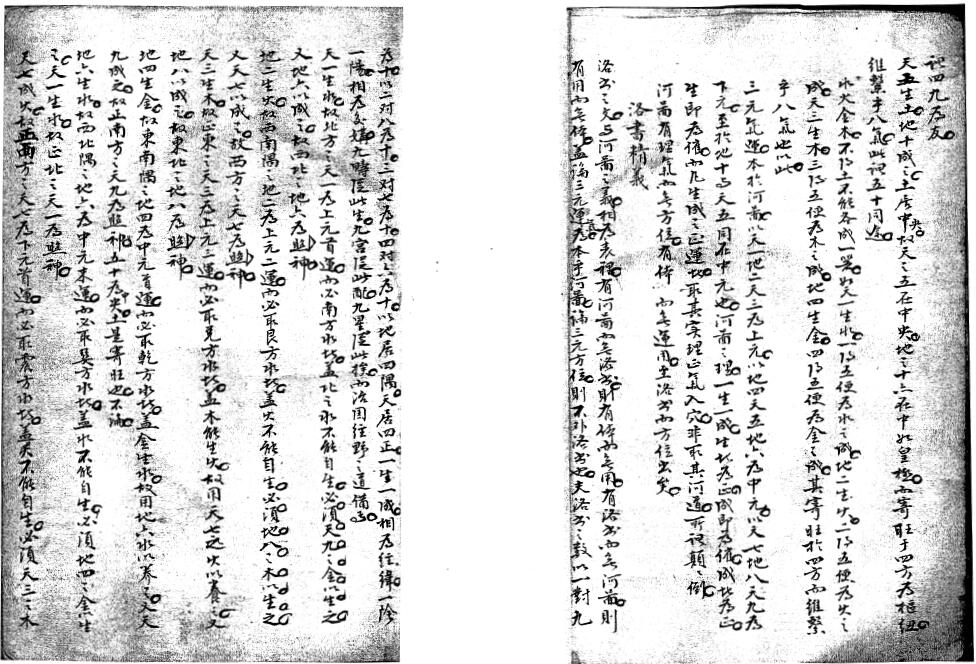 謂四九為友
天五生土地十成之土居中故天之五在中央地之十亦在中如皇極而寄旺于四方為樞紐
維繫乎八氣此謂五十同途
水火金木不得土不能各成一器如天一生水一得五便為水之成地二生火二得五便為火之
成天三生木三得五便為木之成地四生金四得五便為金之成其寄旺於四方而維繫
乎八氣也以此
三元氣運本於河圖以天一地二天三為上元以地四天五地六為中元以天七地八天九為
下元至於地十與天五同在中元也河圖之理一生一成生此為正成即為催成此為正
生即為催而凡生成之正運故取其實理正氣入穴非取其河道所謂顛顛倒
河圖有理氣而無方位有體而無運用至洛書而方位出矣
洛書精義
洛書之文與河圖之義相為表裡有河圖而無洛書則有體而無用有洛書而無河圖則
有用而無體蓋論三元運氣本乎河圖論三元方位則不外洛書也夫洛書之數以一對九
為十以二對八為十三对七為十四对六為十以地居四隅天居四正一生一成相為經緯一陰
一陽相為交媾九疇從此生九宮從此配九星從此推而治國經野之道備焉
天一生水故北方之天一為上元首運而必南方水者蓋北之水不能自生必須天九之金以生之
又地六以成之故西北之地六為照神
地二生火故西南隅之地二為上元二運而必取艮方水者蓋火不能自生必須地八之木以生之
又天七以成之故西方之天七為照神
天三生木故正東之天三為上元三運而必取兌方水者蓋木能生火故用天七之火以養之又
地八以成之故東北之地八為照神
地四生金故東南隅之地四為中元首運而必取乾方水者蓋金生水故用地六水以養之又天
九成之故正南方之天九為照神五十為戊土是寄旺也不論
地六生水故西北隅之地六為中元末運而必取巽方水者蓋水不能自生必須地四之金以生
之天一生水故正北之天一為照神
天七成火故正西方之天七為下元首運而必取震方水者蓋火不能自生必須天三之木